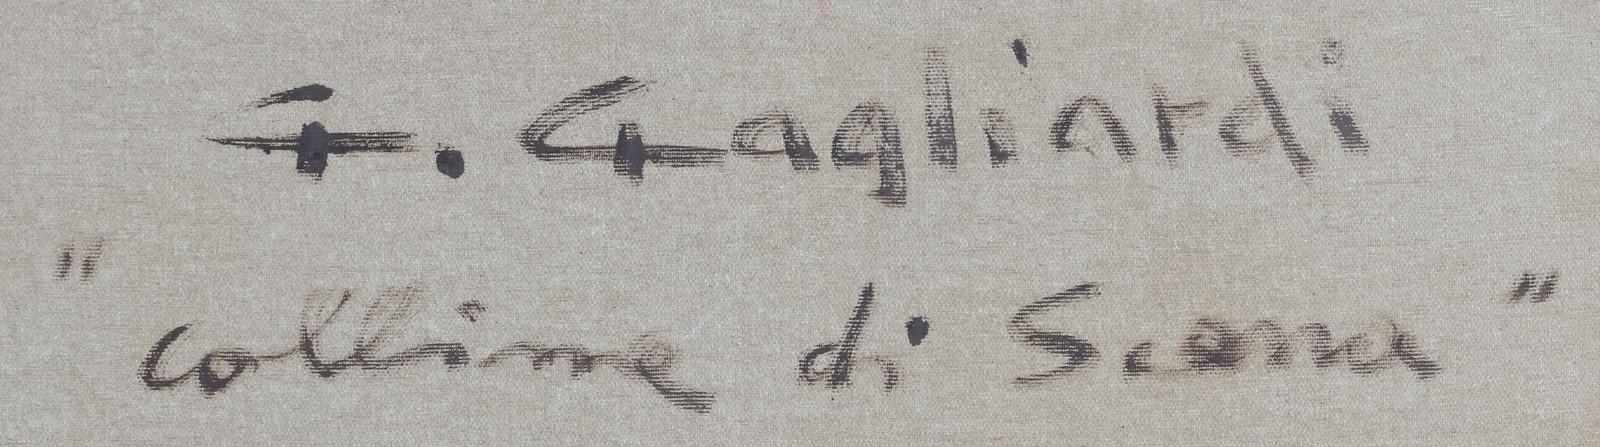 F. Gagliardi
"colline di Siena"